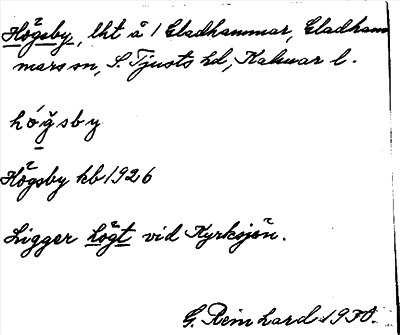 Högsby, lht å 1 Gladhammar, Gladham
mars sn, S. Tjusts hd, Kalmar l.
hógsby
Högsby kb 1926
Ligger högt vid Kyrksjön.
G. Reinhard 1930.